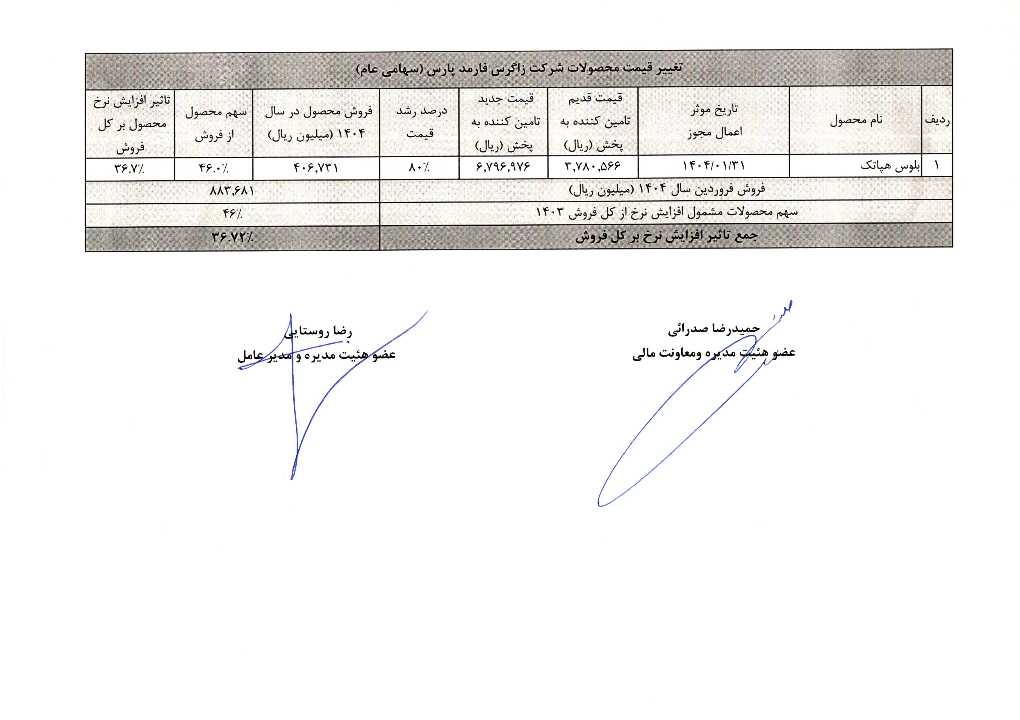 تغییر قیمت محصولات شرکت زاگرس فارمد پارس (سهامی عام)
ردیف | نام محصول | تاریخ موثر اعمال مجوز | قیمت قدیم تامین کننده به پخش (ریال) | قیمت جدید تامین کننده به پخش (ریال) | درصد رشد قیمت | فروش محصول در سال ۱۴۰۴ (میلیون ریال) | سهم محصول از فروش | تاثیر افزایش نرخ محصول بر کل فروش
۱ | بلوس هپاتک | ۱۴۰۴/۰۱/۳۱ | ۳,۷۸۰,۵۶۶ | ۶,۷۹۶,۹۷۶ | ۸۰٪ | ۴۰۶,۷۳۱ | ۴۶.۰٪ | ۳۶.۷٪
فروش فروردین سال ۱۴۰۴ (میلیون ریال) | ۸۸۳,۶۸۱
سهم محصولات مشمول افزایش نرخ از کل فروش ۱۴۰۳ | ۴۶٪
جمع تاثیر افزایش نرخ بر کل فروش | ۳۶.۷۲٪
حمیدرضا صدرائی
عضو هئیت مدیره ومعاونت مالی
رضا روستایی
عضو هئیت مدیره و مدیر عامل